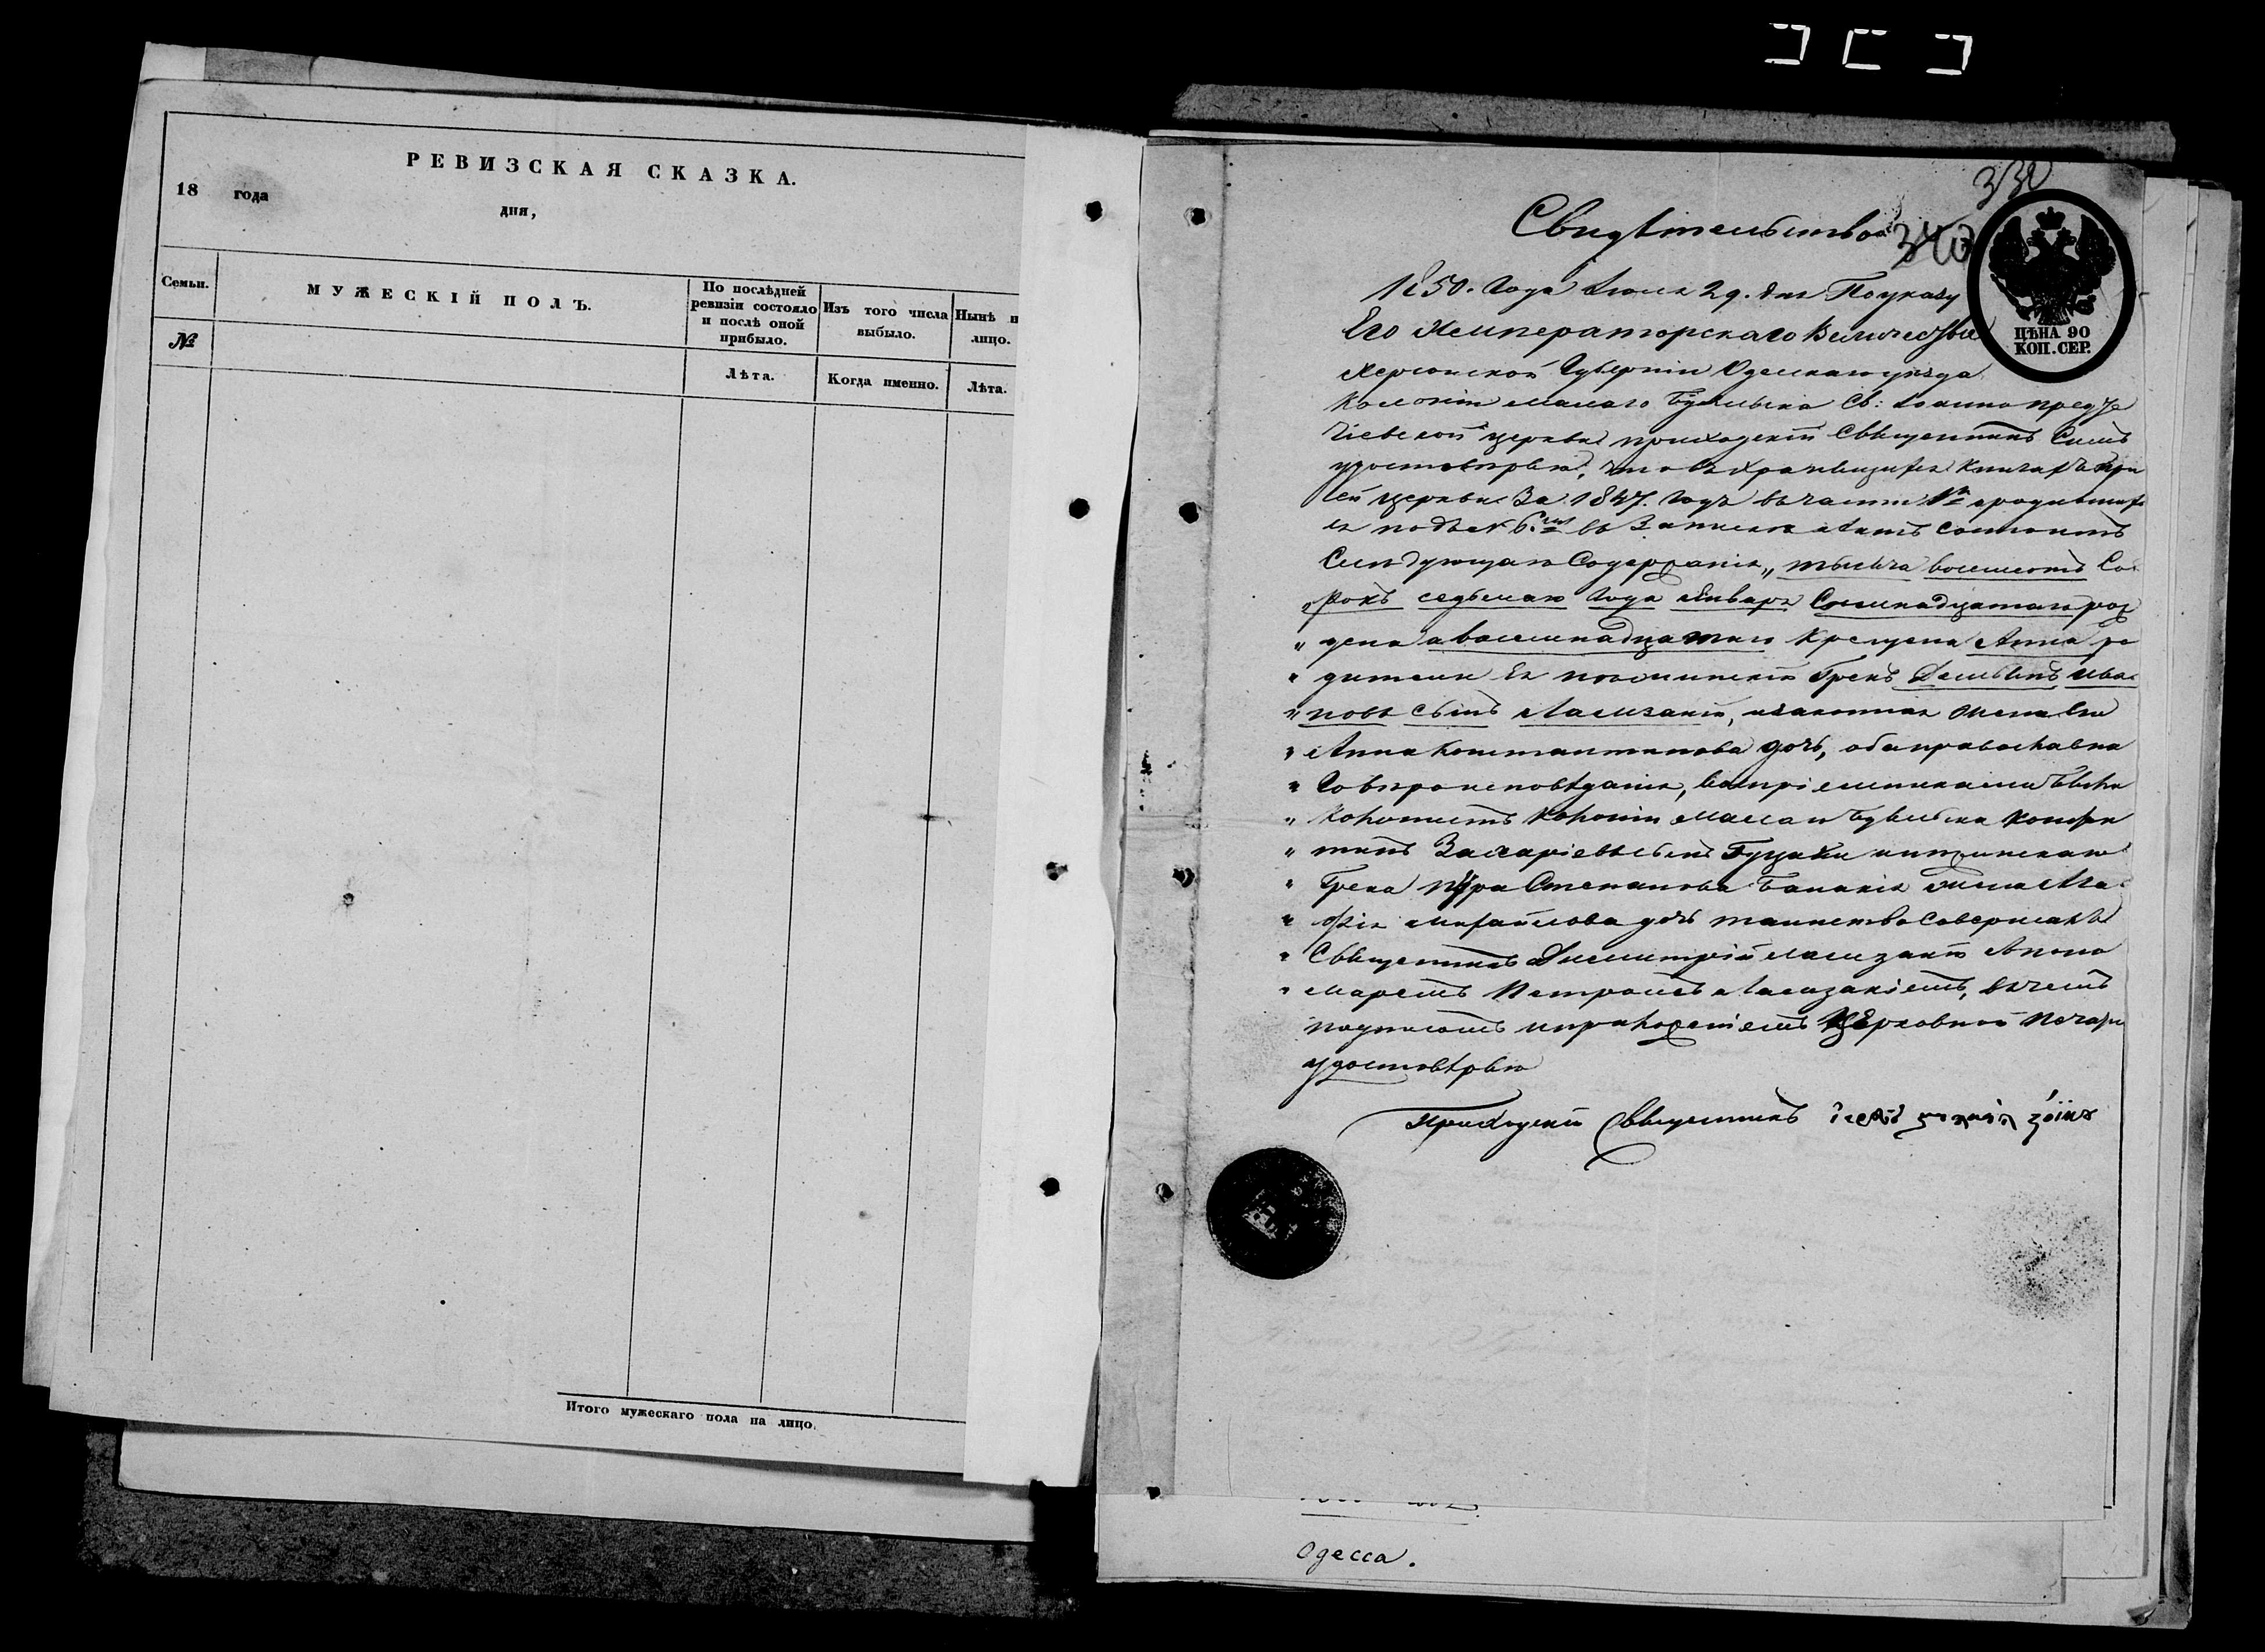 РЕВИЗСКАЯ СКАЗКА.
18 года
дня,
Семьи.
МУЖЕСКІЙ ПОЛЪ.
По послѣдней ревизіи состояло и послѣ оной прибыло.
Изъ того числа выбыло.
Нынѣ н лицо.
№
Лѣта.
Когда именно.
Лѣта.
Итого мужескаго пола на лицо.
330
Свидѣтельство
340
ЦѢНА 90
КОП. СЕР.
1850. Года Іюля 29. дня По указу
Его Императорскаго Величества
Херсонской Губерніи Одесскаго уѣзда
Колоніи Малаго Буялыка Св: Іоанно предте
чіевской церкви приходскій Священникъ Симъ
удостовѣряю, что въ хранящихся книгахъ при
сей церкви За 1847. Годъ въ части 1й о родивших
ся подъ № 6. въ Записки Актъ состоитъ
Слѣдующаго Содержанія „ тысяча восемсотъ Со
„ рокъ седьмаго Года Января Семнадцатаго рож
„ дена а восемнадцатаго крещена Анна ро
„ дители Ея нѣжинскій Грекъ Демьянъ Ива
„ новъ сынъ Ламзакій, и законная жена Его
„ Анна Константинова дочь, оба православна
„ го вѣроисповѣданія, воспріемниками были
„ Колонистъ Колоніи Малаго Буялыка
„ Захаріевъ сынъ и нѣжинскаго
„ Грека Степанова жена
„ Михайлова дочь таинство совершалъ
„ Священникъ Димитрій Ламзакій с поно
„ маремъ Петромъ Ламзакіемъ, въ чемъ
подписомъ и приложеніемъ Церковной печати
удостовѣряю
Приходскій Священникъ
Одесса.